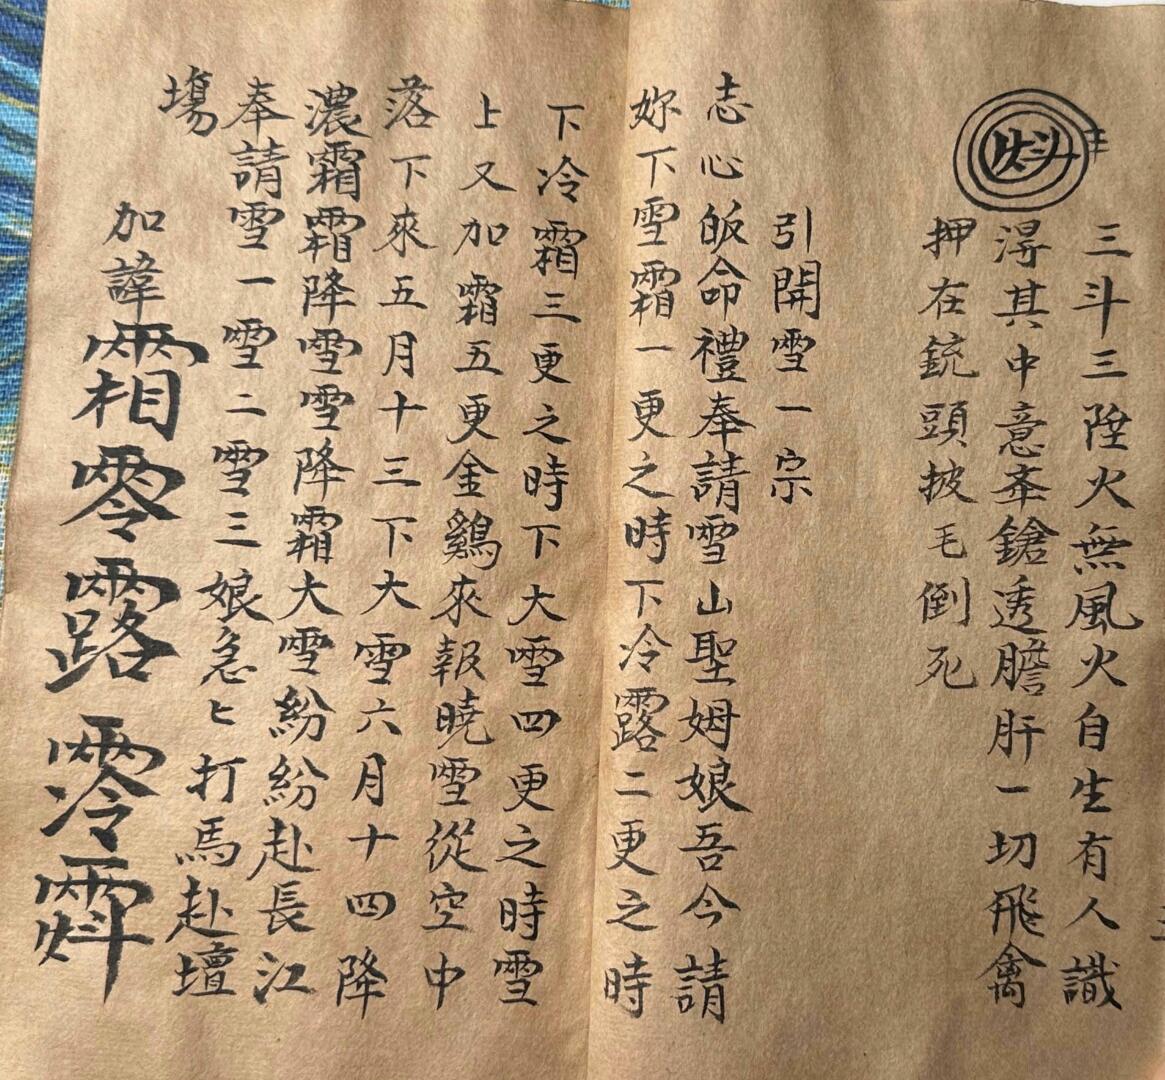 三斗三陞火無風火自生有人識
淂其中意夲鎗透膽肝一切飛禽
押在銃頭披毛倒死
引開雪一宗
志心皈命禮奉請雪山聖姆娘吾今請
妳下雪霜一更之時下冷露二更之時
下冷霜三更之時下大雪四更之時雪
上又加霜五更金鷄來報曉雪從空中
落下來五月十三下大雪六月十四降
濃霜霜降雪雪降霜大雪紛紛赴長江
奉請雪一雪二雪三娘急匕打馬赴壇
塲
加諱霜零露零